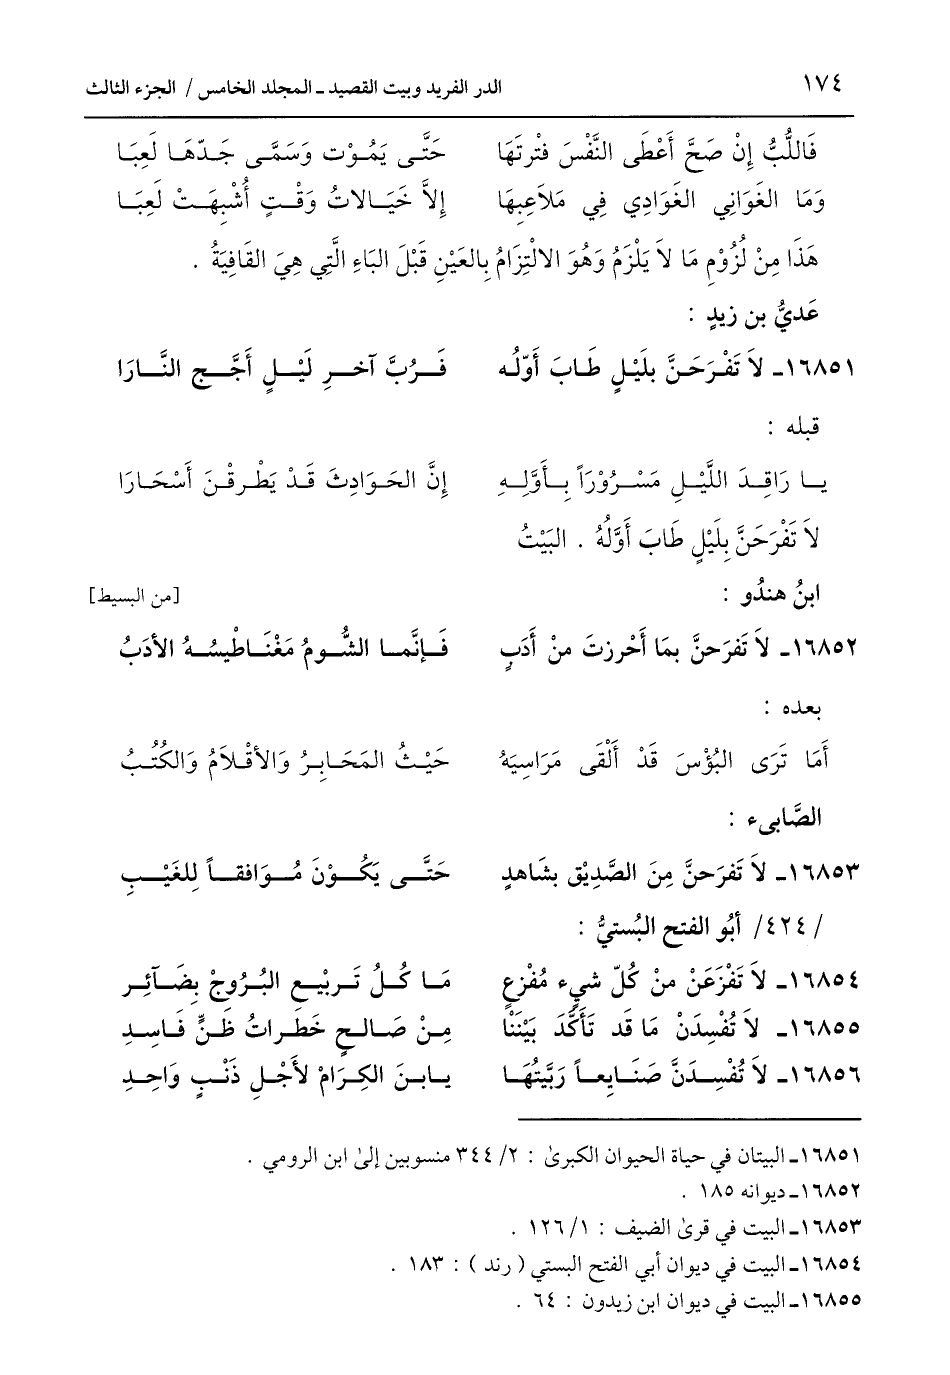 ١٧٤ الدر الفريد وبيت القصيد ـ المجلد الخامس / الجزء الثالث
فَاللُّبُّ إِنْ صَحَّ أَعْطَى النَّفْسَ فْترتَهَا حَتَّى يَمُوْت وَسَمَّى جَدّهَا لَعِبَا
وَمَا الغَوَانِي الغَوَادِي فِي مَلاَعِبِهَا إِلاَّ خَيَالاتُ وَقْتٍ أُشْبِهَتْ لَعِبَا
هَذَا مِنْ لُزُوْمِ مَا لاَ يَلْزَمُ وَهُوَ الالْتِزَامُ بِالعَيْنِ قَبْلَ البَاءِ الَّتِي هِيَ القَافِيَةُ .
عَديُّ بن زيدٍ :
١٦٨٥١ـ لاَ تَفْرَحَنَّ بلَيْلٍ طَابَ أَوّلُه فَرُبَّ آخرِ لَيْلٍ أَجَّج النَّارَا
قبله :
يا رَاقِدَ اللَّيْلِ مَسْرُوْرَاً بِأَوَّلِهِ إِنَّ الحَوَادِثَ قَدْ يَطْرِقْنَ أَسْحَارَا
لاَ تَفْرَحَنَّ بِلَيْلٍ طَابَ أَوَّلُهُ . البَيْتُ
ابنُ هندُو : [من البسيط]
١٦٨٥٢ـ لاَ تَفرَحنَّ بمَا أَحْرزتَ منْ أَدَبٍ فَإنَّما الشُّومُ مَغْنَاطيسُهُ الأدَبُ
بعده :
أَمَا تَرَى البُؤْسَ قَدْ أَلْقَى مَرَاسِيَهُ حَيْثُ المَحَابِرُ وَالأقْلاَمُ وَالكُتُبُ
الصَّابىء :
١٦٨٥٣ـ لاَ تَفرَحنَّ مِنَ الصَّدِيْق بشَاهدٍ حَتَّى يَكُوْنَ مُوَافقاً لِلغَيْبِ
/ ٤٢٤/ أبُو الفتح البُستيُّ :
١٦٨٥٤ـ لاَ تَفْزَعَنْ منْ كُلّ شيءٍ مُفْزعٍ مَا كُلُ تَربْيعِ البُرُوجْ بضَآئِر
١٦٨٥٥ـ لاَ تُفْسِدَنْ مَا قَد تَأَكَّدَ بَيْننْا مِنْ صَالحٍ خَطَراتُ ظَنٍّ فَاسِد
١٦٨٥٦ـ لاَ تُفْسِدَنَّ صَنَايعاً رَبَّيتُهَا يابنَ الكِرَامْ لأجْلِ ذَنْبٍ وَاحِدِ
١٦٨٥١ـ البيتان في حياة الحيوان الكبرىٰ : ٢/ ٣٤٤ منسوبين إلىٰ ابن الرومي .
١٦٨٥٢ـ ديوانه ١٨٥ .
١٦٨٥٣ـ البيت في قرىٰ الضيف : ١/ ١٢٦ .
١٦٨٥٤ـ البيت في ديوان أبي الفتح البستي ( رند ) : ١٨٣ .
١٦٨٥٥ـ البيت في ديوان ابن زيدون : ٦٤ .